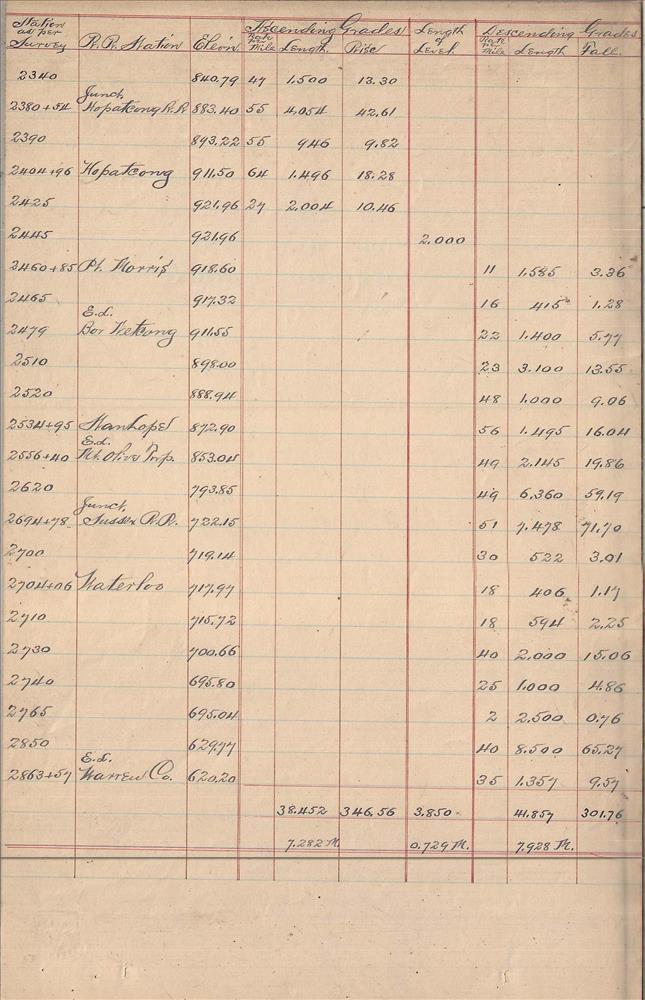 Station as per Survey R.R. Station Elev'n Ascending Grades Rate per Mile Length Rise Length of Level Descending Grades Rate per Mile Length Fall
2340 840.79 47 1.500 13.30
Junct.
2380+54 Hopatcong R.R. 883.40 55 4.054 42.61
2390 893.22 55 946 9.82
2404+96 Hopatcong 911.50 64 1.496 18.28
2425 921.96 27 2.004 10.46
2445 921.96 2.000
2460+85 Pt. Morris 918.60 11 1.585 3.36
2465 917.32 16 415 1.28
E.L.
2479 Bor Netcong 911.55 22 1.400 5.77
2510 898.00 23 3.100 13.55
2520 888.94 48 1.000 9.06
2534+95 Stanhope 872.90 56 1.495 16.04
E.L.
2556+40 Mt. Olive Twp. 853.04 49 2.145 19.86
2620 793.85 49 6.360 59.19
Junct.
2694+78 Sussex R.R. 722.15 51 7.478 71.70
2700 719.14 30 522 3.01
2704+06 Waterloo 717.97 18 406 1.17
2710 715.72 18 594 2.25
2730 700.66 40 2.000 15.06
2740 695.80 25 1.000 4.86
2765 695.04 2 2.500 0.76
2850 629.77 40 8.500 65.27
E.L.
2863+57 Warren Co. 620.20 35 1.357 9.57
38.452 346.56 3.850 41.857 301.76
7.282 M. 0.729 M. 7.928 M.